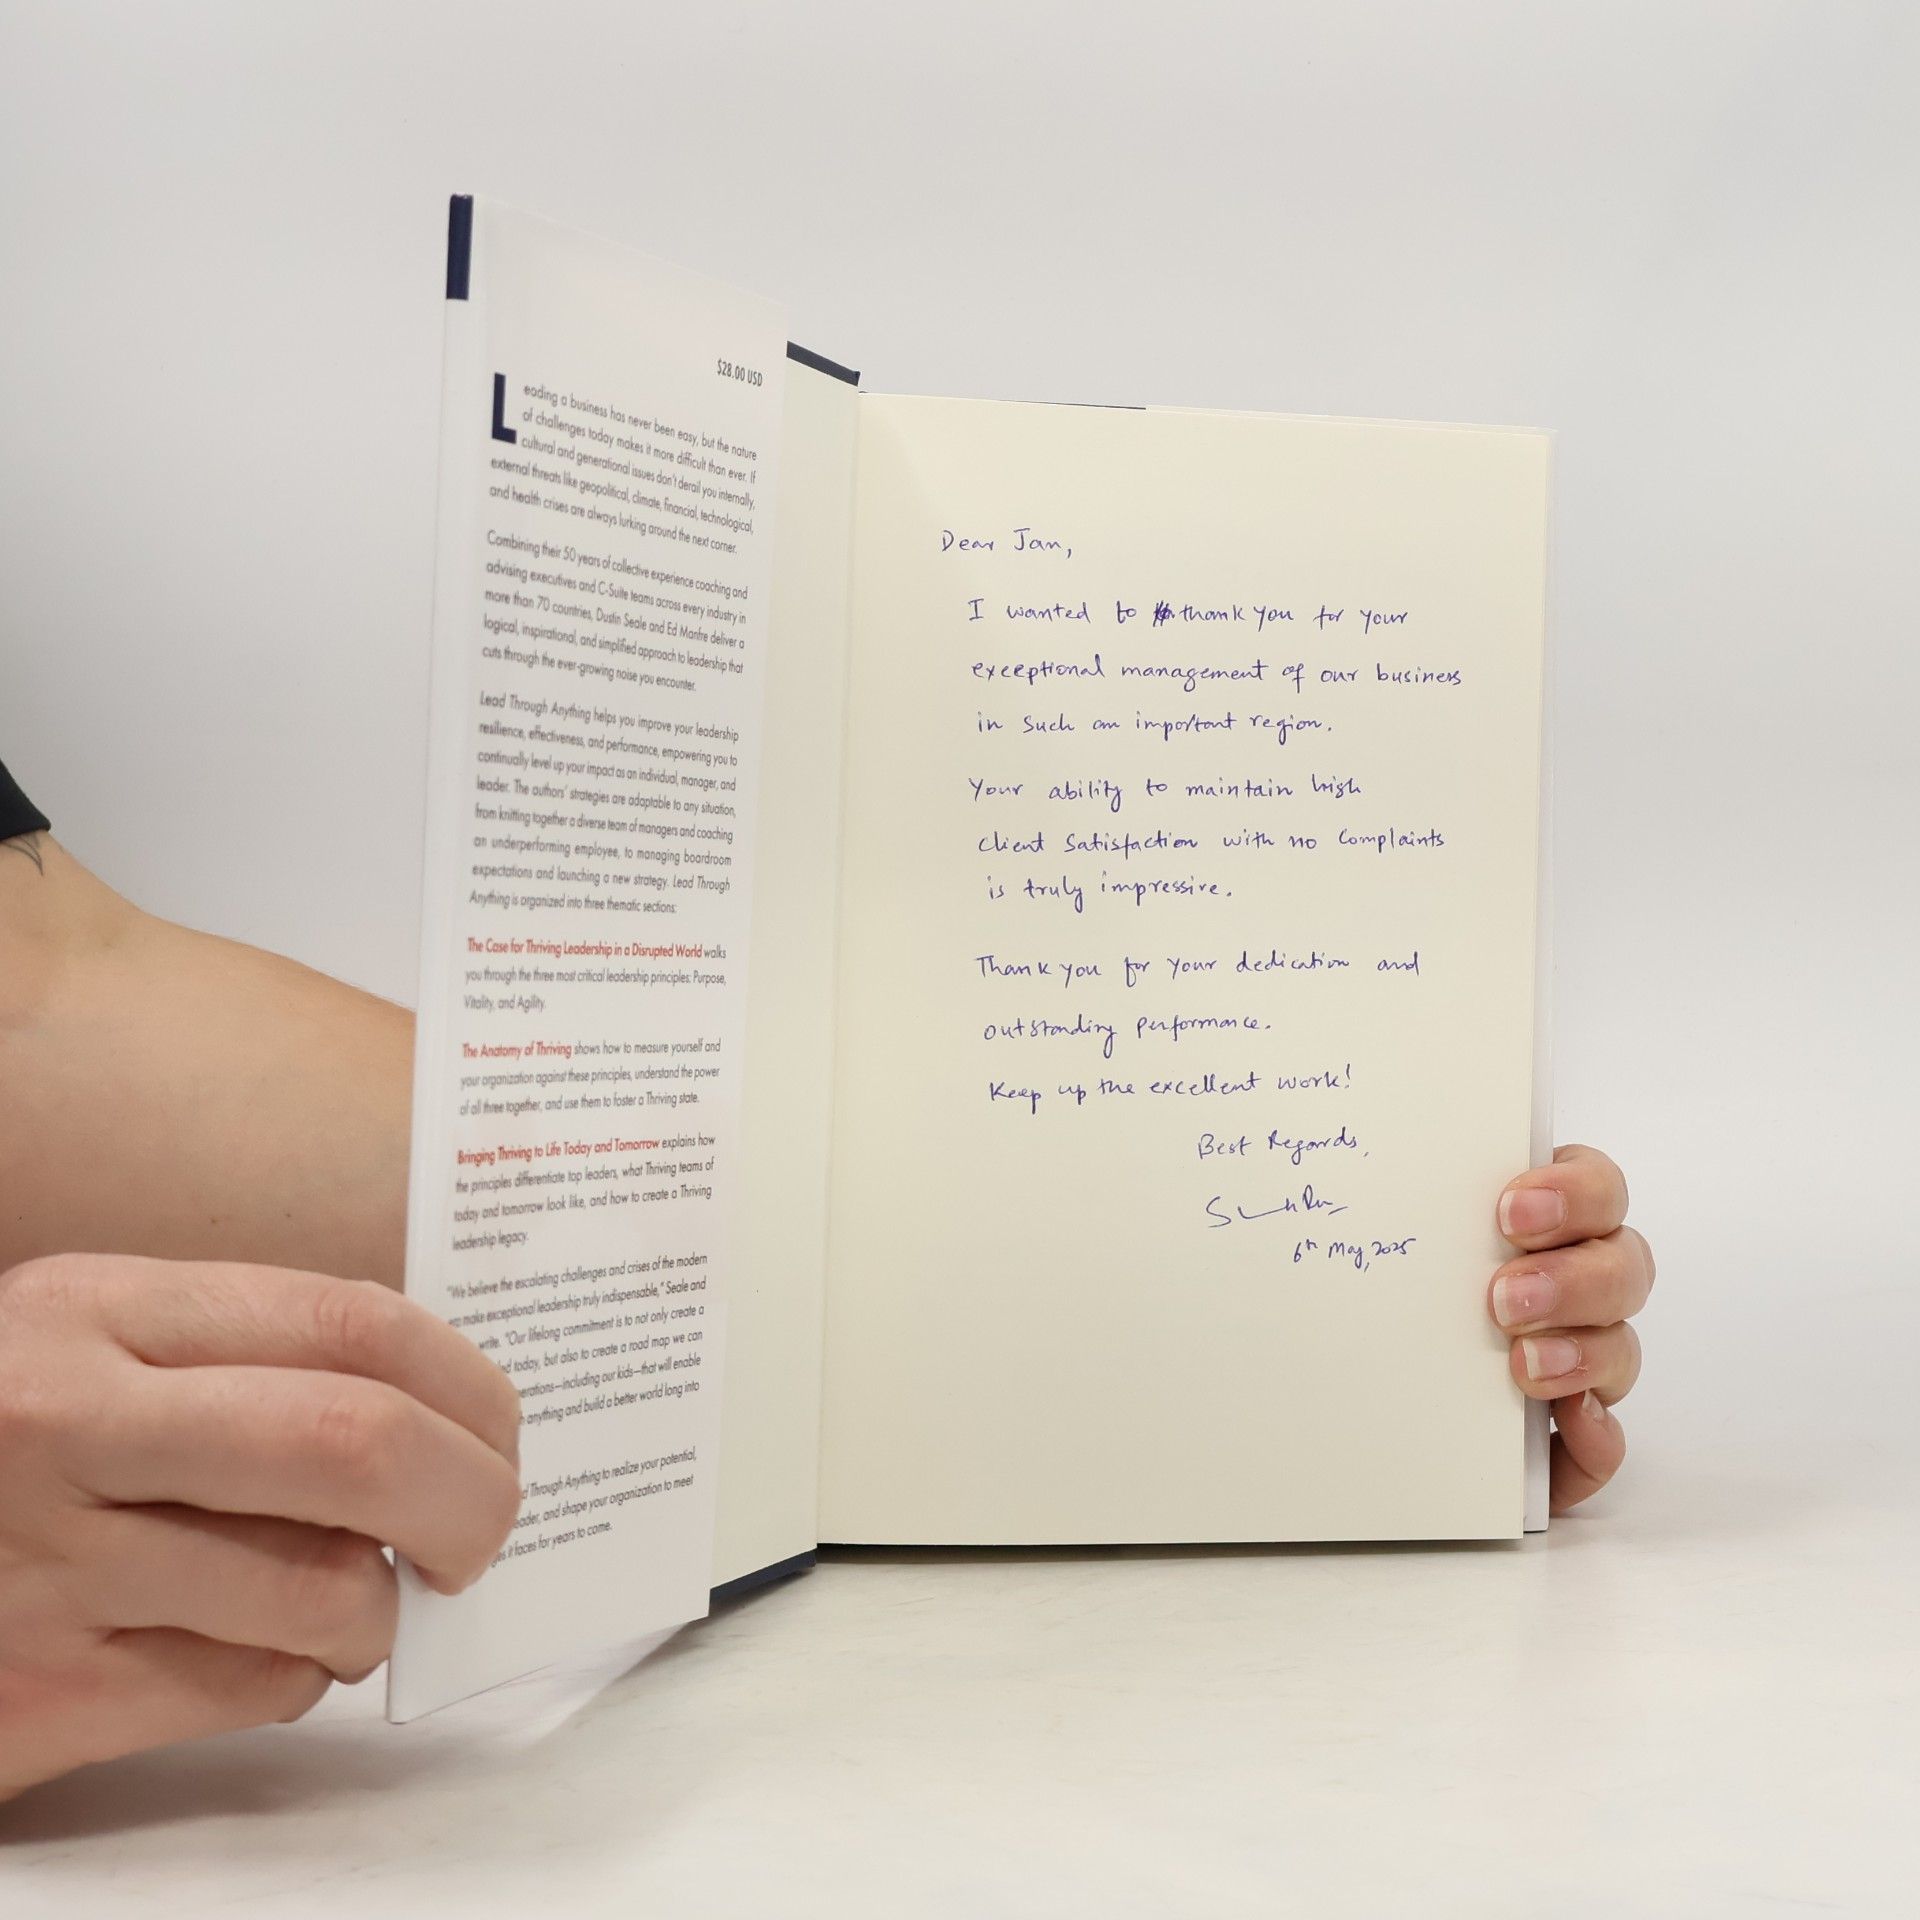 $28.00 USD
Leading a business has never been easy, but the nature
of challenges today makes it more difficult than ever. If
cultural and generational issues don't derail you internally,
external threats like geopolitical, climate, financial, technological,
and health crises are always lurking around the next corner.
Combining their 50 years of collective experience coaching and
advising executives and C-Suite teams across every industry in
more than 70 countries, Dustin Seale and Ed Manfre deliver a
logical, inspirational, and simplified approach to leadership that
cuts through the ever-growing noise you encounter.
Lead Through Anything helps you improve your leadership
resilience, effectiveness, and performance, empowering you to
continually level up your impact as an individual, manager, and
leader. The authors' strategies are adaptable to any situation,
from knitting together a diverse team of managers and coaching
an underperforming employee, to managing boardroom
expectations and launching a new strategy. Lead Through
Anything is organized into three thematic sections:
The Case for Thriving Leadership in a Disrupted World walks
you through the three most critical leadership principles: Purpose,
Vitality, and Agility.
The Anatomy of Thriving shows how to measure yourself and
your organization against these principles, understand the power
of all three together, and use them to foster a Thriving state.
Bringing Thriving to Life Today and Tomorrow explains how
the principles differentiate top leaders, what Thriving teams of
today and tomorrow look like, and how to create a Thriving
leadership legacy.
"We believe the escalating challenges and crises of the modern
make exceptional leadership truly indispensable," Seale and
write. "Our lifelong commitment is to not only create a
today, but also to create a road map we can
erations—including our kids—that will enable
anything and build a better world long into
Through Anything to realize your potential,
eader, and shape your organization to meet
it faces for years to come.
Dear Jan,
I wanted to thank you for your
exceptional management of our business
in such an important region.
Your ability to maintain high
client satisfaction with no complaints
is truly impressive.
Thank you for your dedication and
outstanding performance.
Keep up the excellent work!
Best Regards,
6th May, 2025